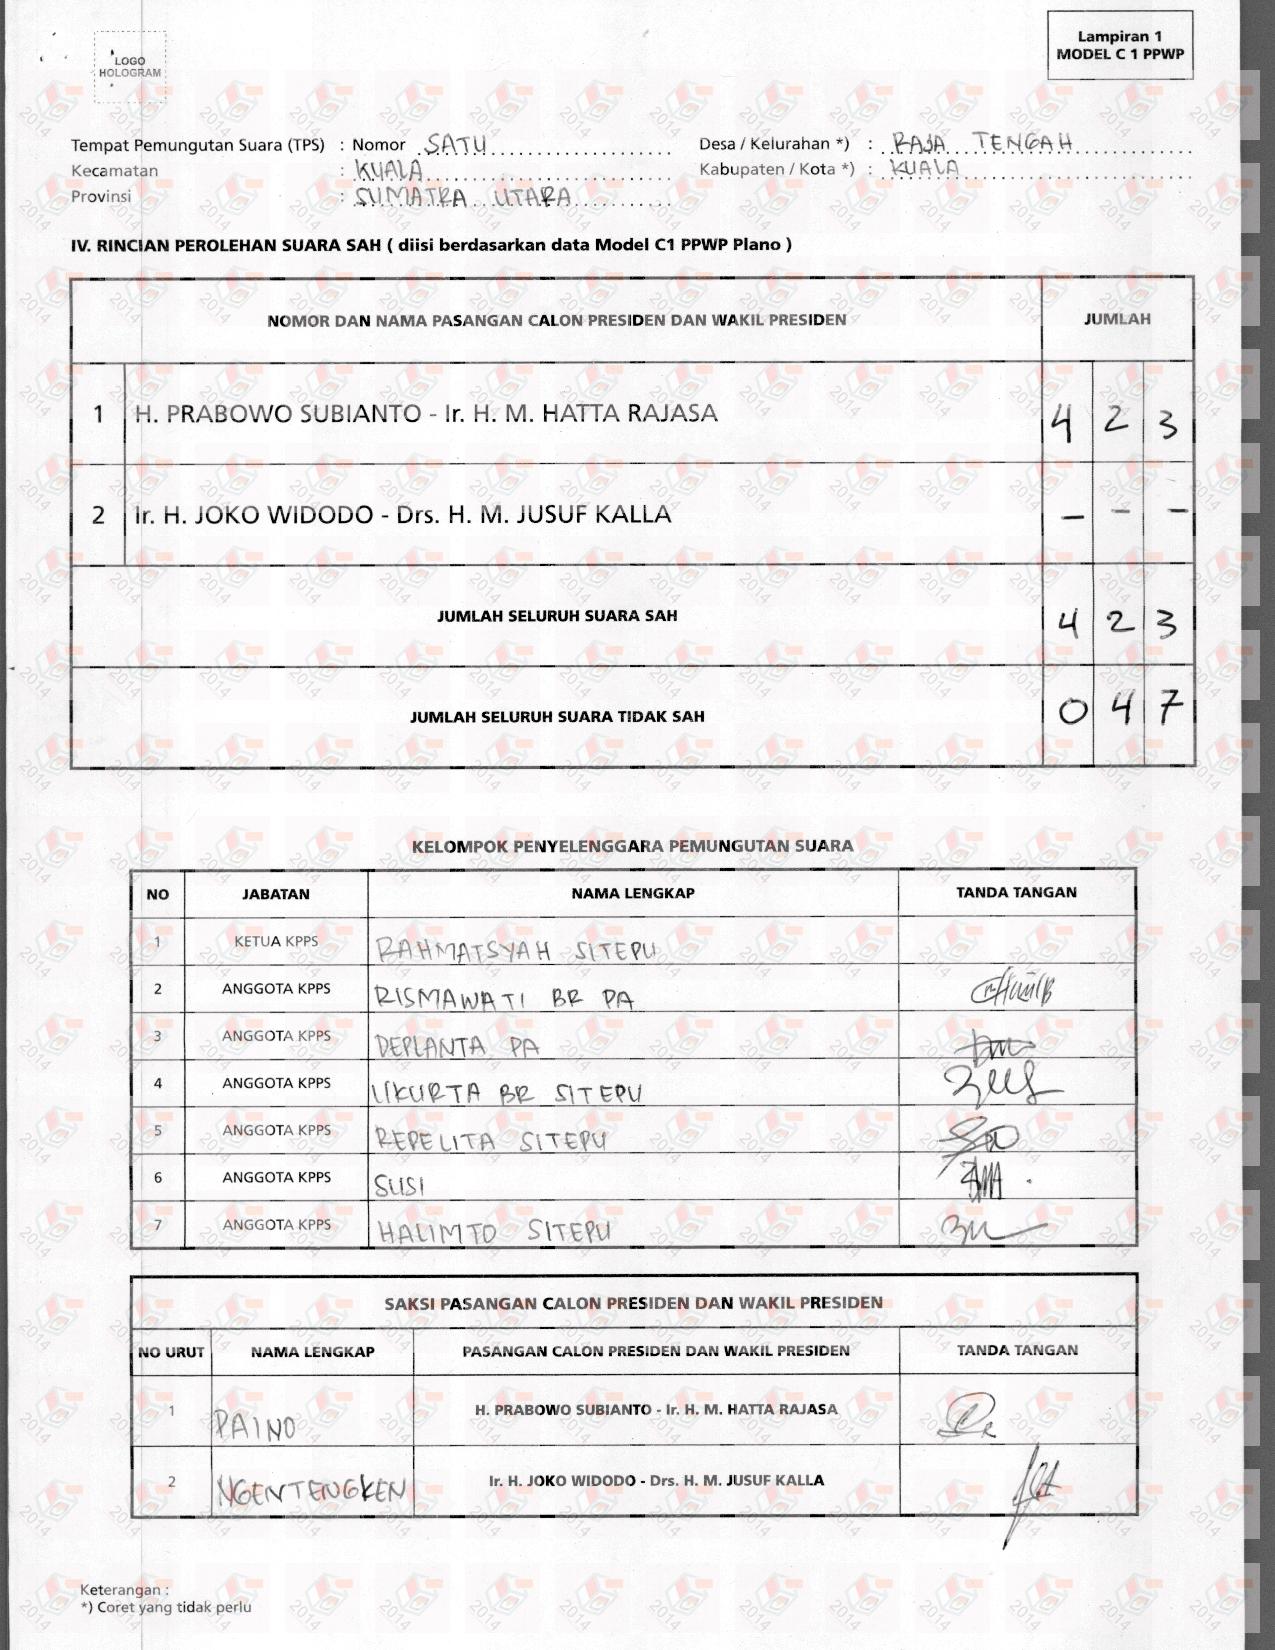 Lampiran 1
MODEL C 1 PPWP
LOGO
HOLOGRAM
Tempat Pemungutan Suara (TPS) : Nomor SATU
Desa / Kelurahan *) : RAJA TENGAH
Kecamatan : KUALA
Kabupaten / Kota *) : KUALA
Provinsi : SUMATRA UTARA
IV. RINCIAN PEROLEHAN SUARA SAH ( diisi berdasarkan data Model C1 PPWP Plano )
NOMOR DAN NAMA PASANGAN CALON PRESIDEN DAN WAKIL PRESIDEN JUMLAH
1 H. PRABOWO SUBIANTO - Ir. H. M. HATTA RAJASA 4 2 3
2 Ir. H. JOKO WIDODO - Drs. H. M. JUSUF KALLA - - -
JUMLAH SELURUH SUARA SAH 4 2 3
JUMLAH SELURUH SUARA TIDAK SAH 0 4 7
KELOMPOK PENYELENGGARA PEMUNGUTAN SUARA
NO JABATAN NAMA LENGKAP TANDA TANGAN
1 KETUA KPPS RAHMATSYAH SITEPU
2 ANGGOTA KPPS RISMAWATI BR PA
3 ANGGOTA KPPS DEPLANTA PA
4 ANGGOTA KPPS UKURTA BR SITEPU
5 ANGGOTA KPPS REPELITA SITEPU
6 ANGGOTA KPPS SUSI
7 ANGGOTA KPPS HALIMTO SITEPU
SAKSI PASANGAN CALON PRESIDEN DAN WAKIL PRESIDEN
NO URUT NAMA LENGKAP PASANGAN CALON PRESIDEN DAN WAKIL PRESIDEN TANDA TANGAN
1 PAINO H. PRABOWO SUBIANTO - Ir. H. M. HATTA RAJASA
2 NGENTENGKEN Ir. H. JOKO WIDODO - Drs. H. M. JUSUF KALLA
Keterangan :
*) Coret yang tidak perlu